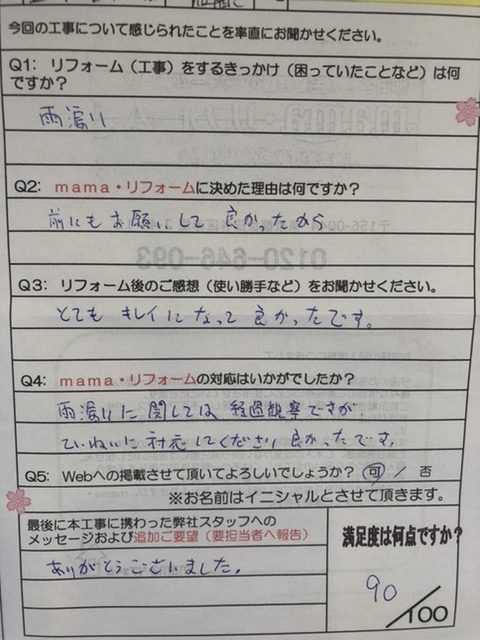 今回の工事について感じられたことを率直にお聞かせください。
Q1: リフォーム（工事）をするきっかけ（困っていたことなど）は何
ですか？
雨漏り
Q2: mama・リフォームに決めた理由は何ですか？
前にもお願いして良かったから
Q3: リフォーム後のご感想（使い勝手など）をお聞かせください。
とてもキレイになって良かったです。
Q4: mama・リフォームの対応はいかがでしたか？
雨漏りに関しては経過観察ですが
ていねいに対応してくださり良かったです。
Q5: Webへの掲載させて頂いてよろしいでしょうか？ 可 / 否
※お名前はイニシャルとさせて頂きます。
最後に本工事に携わった弊社スタッフへの
メッセージおよび追加ご要望（要担当者へ報告）
ありがとうございました。
満足度は何点ですか？
90/100
0120-646-093